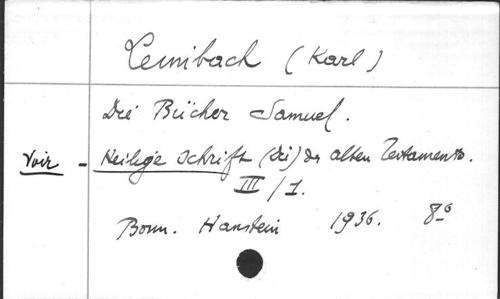 Leimbach (Karl)
Die Bücher Samuel.
Voir - Heilige Schrift (die) des alten Testaments.
III/1.
Bonn. Hanstein 1936. 8°